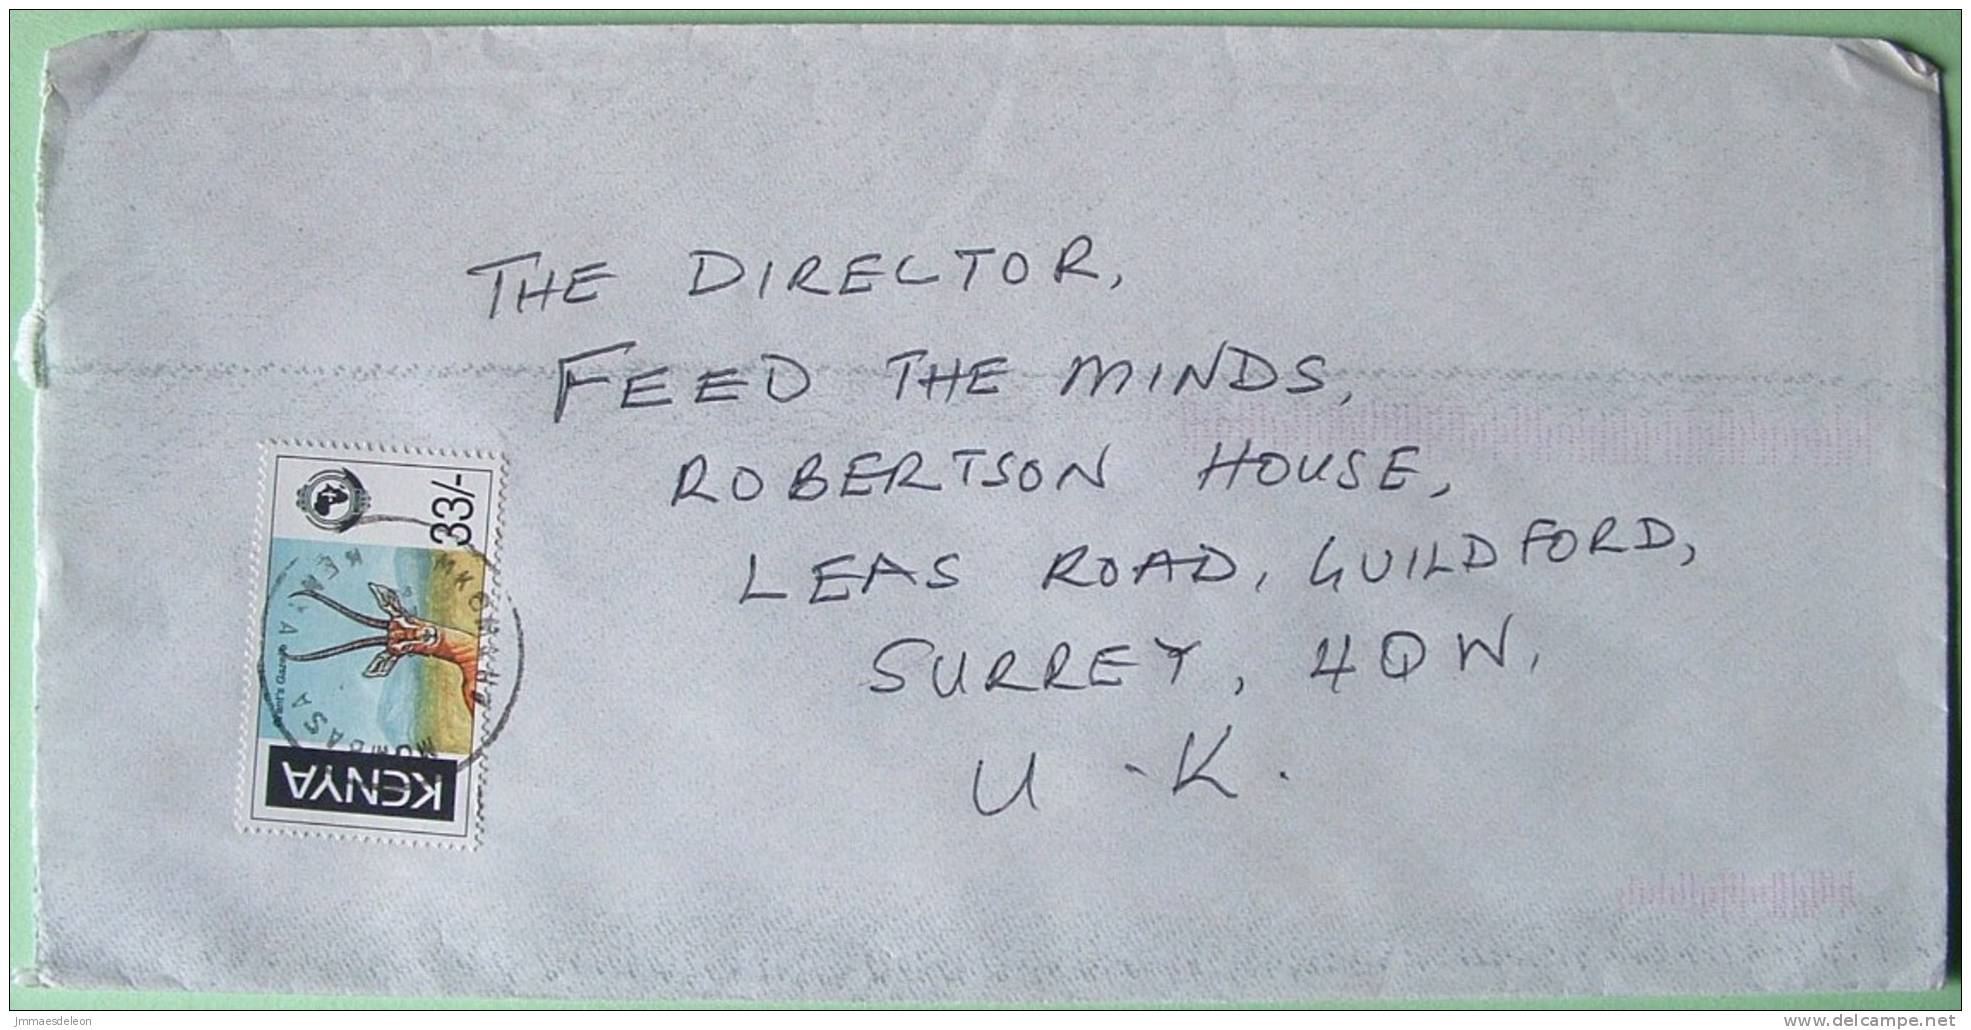 THE DIRECTOR,
FEED THE MINDS,
ROBERTSON HOUSE,
LEAS ROAD, GUILDFORD,
SURREY, 4QW,
U.K.
33/-
Grant's Gazelle
KENYA
KENYA
MOMBASA
jmmaesdeleon
www.delcampe.net